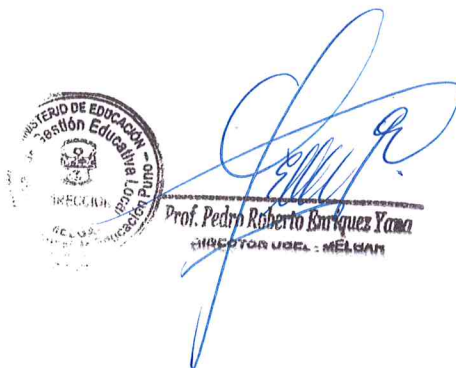 MINISTERIO DE EDUCACIÓN –
Gestión Educativa Local
DIRECCIÓN
Educación Puno
Prof. Pedro Roberto Enríquez Yana
DIRECTOR UGEL - MELGAR